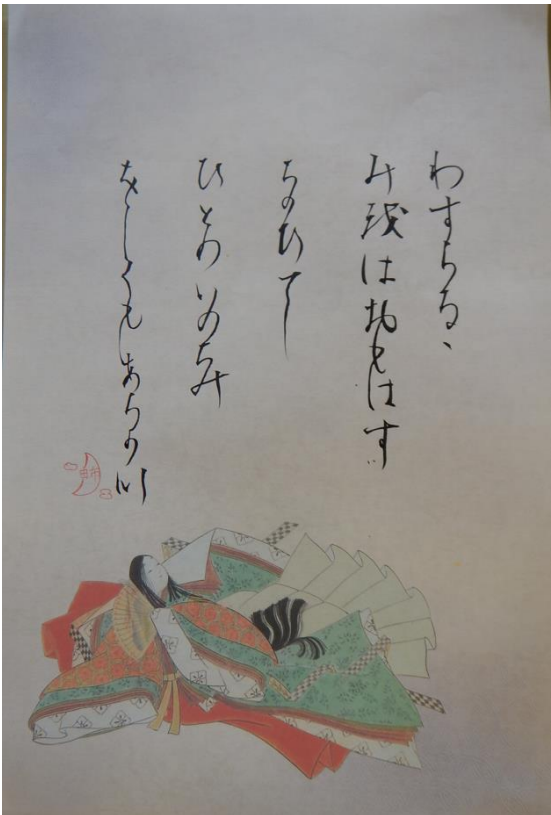 わすらるゝ
み越はおもはす
ちかひてし
ひとのいのちの
をしくもあるか那